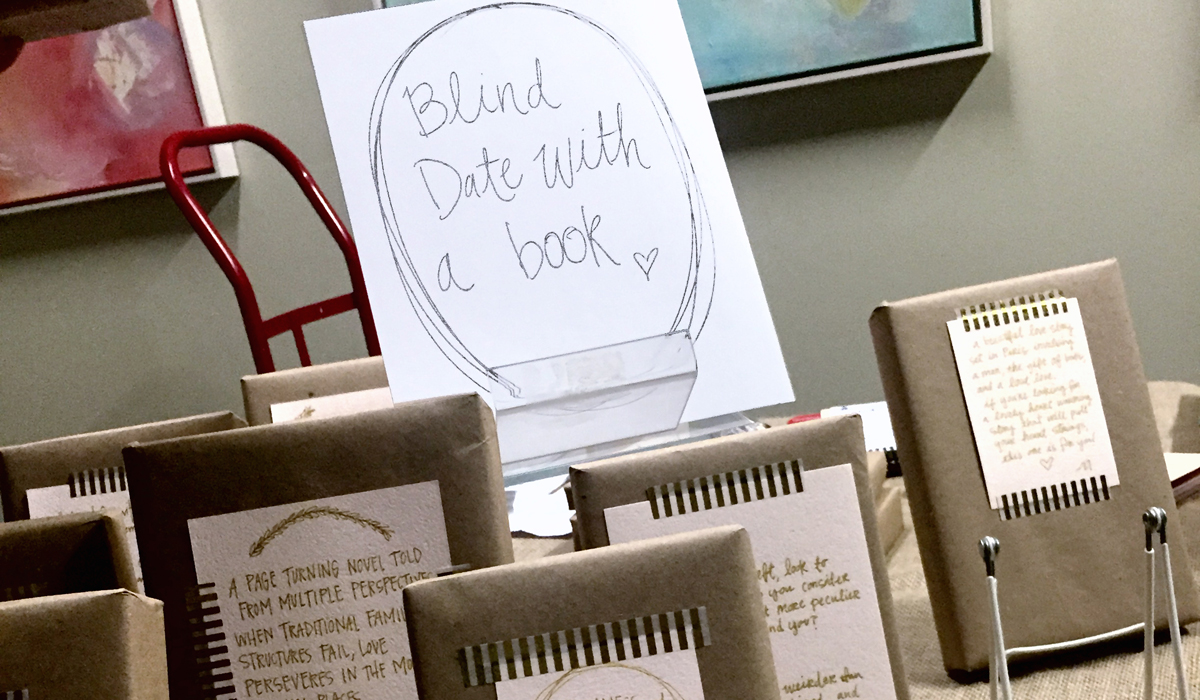 Blind
Date With
a book
A PAGE TURNING NOVEL TOLD
FROM MULTIPLE PERSPECTIVES
WHEN TRADITIONAL
STRUCTURES FAIL, LOVE
PERSEVERES IN THE
PLACES
look to
you consider
more peculiar
you?
weirder than
and
a beautiful love story
set in Paris involving
a man, the wife of
and a lost love.
if you're looking for
a lovely, heart warming
story that will pull
your heart strings,
this one is for you!